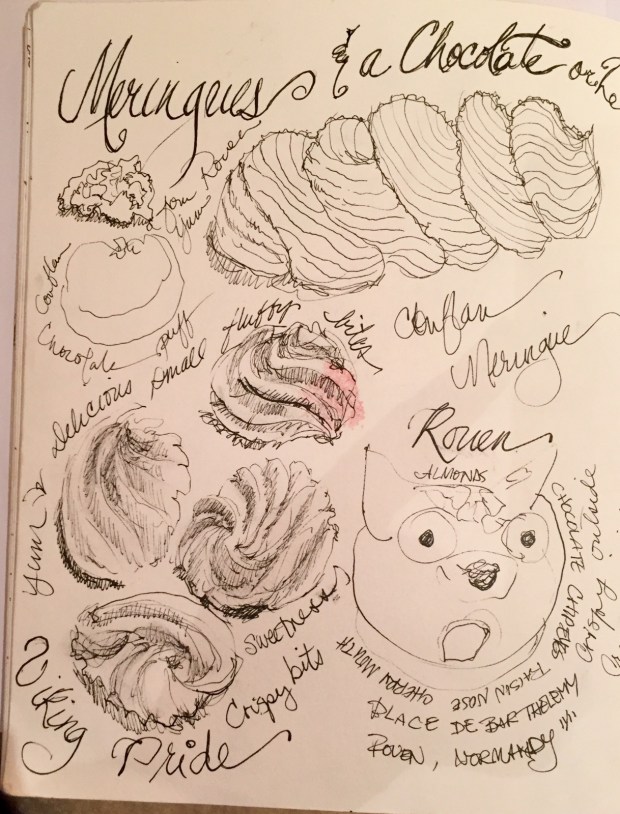 Meringues & a Chocolate or
from Rouen
Yum
Conflan
Chocolate puff
Conflan
Meringue
Yum is delicious small fluffy bites
Rouen
ALMONDS
CHOCOLATE CHIP EYES
Crispy outside
RAISIN NOSE CHERRY MOUTH
sweetness
Crispy bits
PLACE DE BARTHELEMY
ROUEN, NORMANDY
Viking Pride